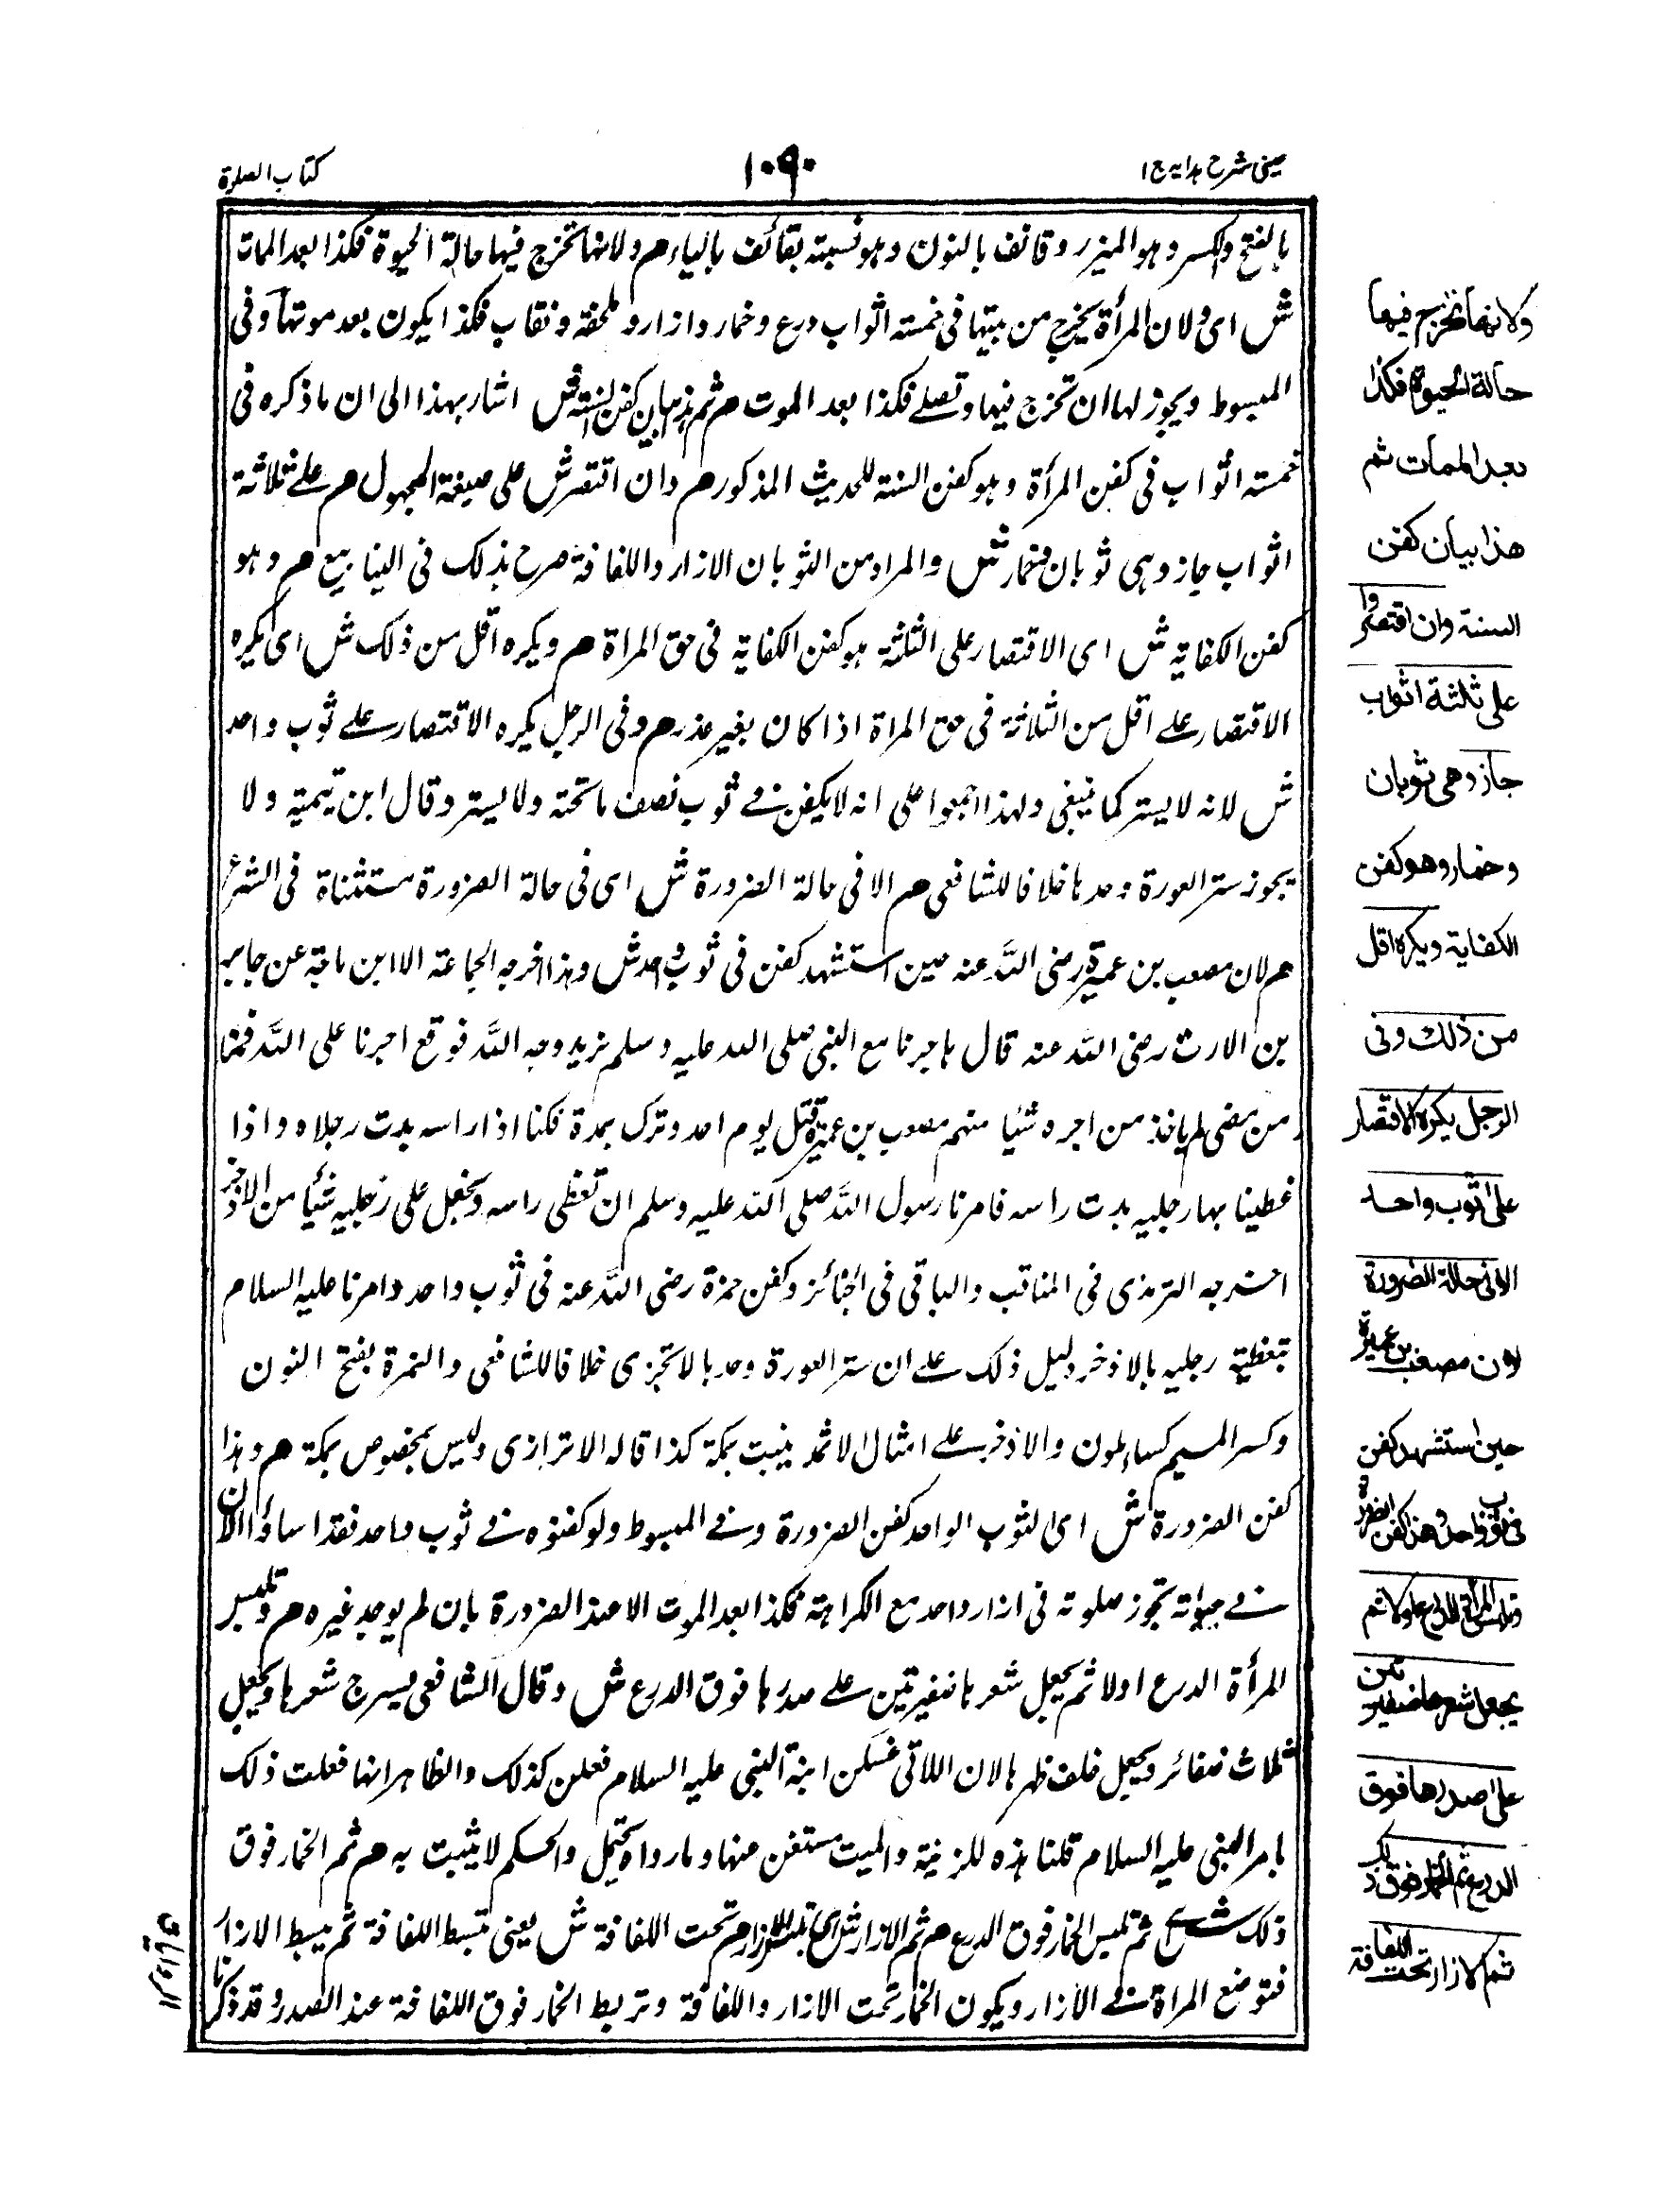 عینی شرح ہدایہ ج ۱
۱۰۹۰
کتاب الصلوة
بالفتح والکسر وہو المیزر وقانف بالنون وہو نسبتہ بقائف بالیاء م ولانہا تخرج فیہا حالة الحیوة فکذا بعد الممات
ش ای ولان المرأة یخرج من بیتہا فی خمسة اثواب درع وخمار وازار وملحفة ونقاب فکذا یکون بعد موتہا وفی
المبسوط ویجوز لہا ان تخرج فیہا وتصلے فکذا بعد الموت م ثم ہذا بیان کفن السنة ش اشار بہذا الی ان ما ذکرہ فی
خمسة اثواب فی کفن المرأة وہو کفن السنة للحدیث المذکور م وان اقتصر ش علی صیغة المجہول م علے ثلاثة
اثواب جاز وہی ثوبان وخمار ش والمراد من الثوبان الازار واللفافة صرح بذلک فی الینابیع م وہو
کفن الکفایة ش ای الاقتصار علی الثلثة ہو کفن الکفایة فی حق المراة م ویکرہ اقل من ذلک ش ای یکرہ
الاقتصار علے اقل من الثلاثة فی حق المراة اذا کان بغیر عذر م وفی الرجل یکرہ الاقتصار علے ثوب واحد
ش لانہ لا یستر کما ینبغی ولہذا اجمعوا علی انہ لا یکفن فے ثوب نصف ما تحتہ ولا یستر وقال ابن تیمیة ولا
یجوز ستر العورة وحدہا خلافا للشافعی م الا فی حالة الضرورة ش ای فی حالة الضرورة مستثناة فی الشرع
م لان مصعب بن عمیرة رضی اللہ عنہ حین استشہد کفن فی ثوب واحد ش وہذا اخرجہ الجماعة الا ابن ماجة عن جابر
بن الارت رضی اللہ عنہ قال ہاجرنا مع النبی صلی اللہ علیہ وسلم نرید وجہ اللہ فوقع اجرنا علی اللہ فمنا
من مضی لم یاخذ من اجرہ شئیا منہم مصعب بن عمیرة قتل یوم احد وترک نمرة فکنا اذا راسہ بدت رجلاہ واذا
غطینا بہا رجلیہ بدت راسہ فامرنا رسول اللہ صلی اللہ علیہ وسلم ان تغطی راسہ ویجعل علی رجلیہ شئیا من الاذخر
اخرجہ الترمذی فی المناقب والباقی فی الجنائز وکفن حمزة رضی اللہ عنہ فی ثوب واحد وامرنا علیہ السلام
بتغطیة رجلیہ بالاذخر دلیل ذلک علے ان ستر العورة وحدہا لا تجزی خلافا للشافعی والنمرة بفتح النون
وکسر المیم کساء ملون والاذخر علے امثال الاثمد ینبت بمکة کذا قالہ الاترازی ولیس بمخصوص بمکة م وہذا
کفن الضرورة ش ای الثوب الواحد کفن الضرورة وفے المبسوط ولو کفنوہ فے ثوب واحد فقد اساؤا الان
فے حیاتہ تجوز صلوتہ فی ازار واحد مع الکراہة فکذا بعد الموت الا عند الضرورة بان لم یوجد غیرہ م وتلبس
المرأة الدرع اولا ثم یجعل شعرہا ضفیرتین علے صدرہا فوق الدرع ش وقال الشافعی یسرح شعرہا ویجعل
ثلاث ضفائر ویجعل خلف ظہرہا لان اللاتی غسلن ابنة النبی علیہ السلام فعلن کذلک والظاہر انہا فعلت ذلک
بامر النبی علیہ السلام قلنا ہذہ للزینة والمیت مستغن عنہا وما رواہ یحتمل والحکم لا یثبت بہ م ثم الخمار فوق
ذلک ش ثم تلبس الخمار فوق الدرع م ثم الازار ش م تحت اللفافة ش یعنی تبسط اللفافة ثم یبسط الازار
فتوضع المراة فے الازار ویکون الخمار تحت الازار واللفافة وتربط الخمار فوق اللفافة عند الصدر وقد ذکرنا
ولانها تخرج فيها
حالة الحيوة فكذا
بعد الممات ثم
هذا بيان كفن
السنة وان اقتصروا
على ثلثة اثواب
جاز وهي ثوبان
وخمار وهو كفن
الكفاية ويكره اقل
من ذلك وفى
الرجل يكره الاقتصار
على ثوب واحد
الا فى حالة الضرورة
لان مصعب بن عميرة
حين استشهد كفن
فى ثوب واحد وهذا كفن الضرورة
وتلبس المرأة الدرع اولا ثم
يجعل شعرها ضفيرتين
على صدرها فوق
الدرع ثم الخمار فوق ذلك
ثم الازار تحت اللفافة